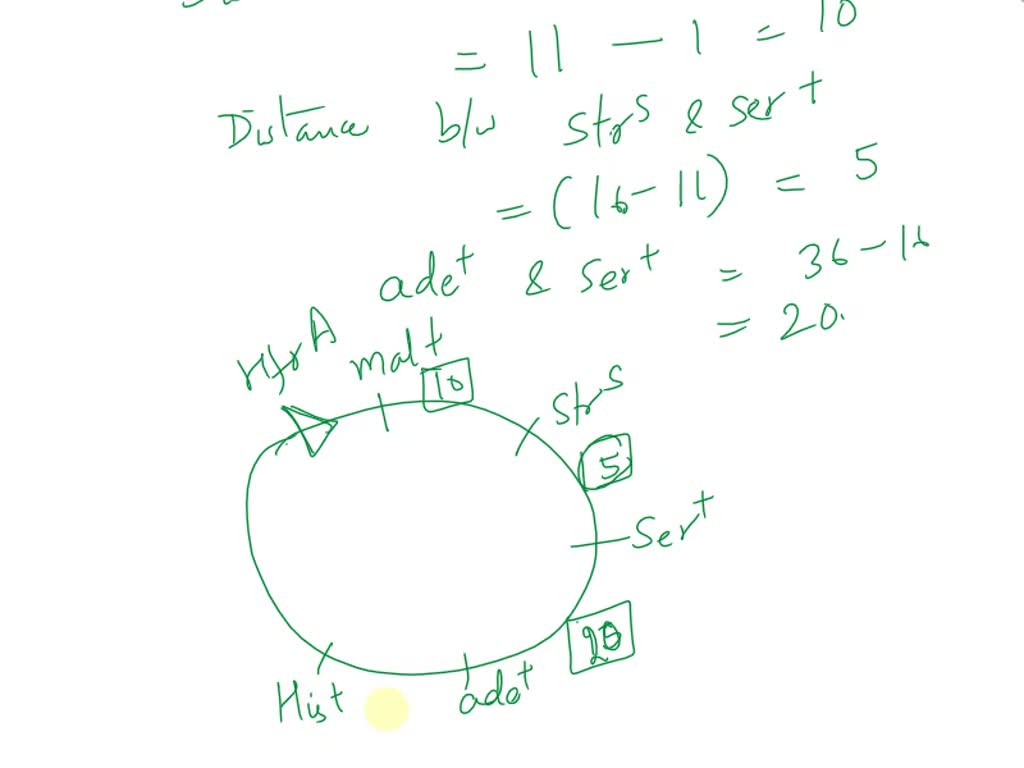 = 11 - 1 = 10
Distance b/w Str^S & ser^+
= (16 - 11) = 5
ade^+ & Ser^+ = 36 - 16
= 20.
HfrA mal^+
10
Str^S
5
Ser^+
20
His^+ ade^+